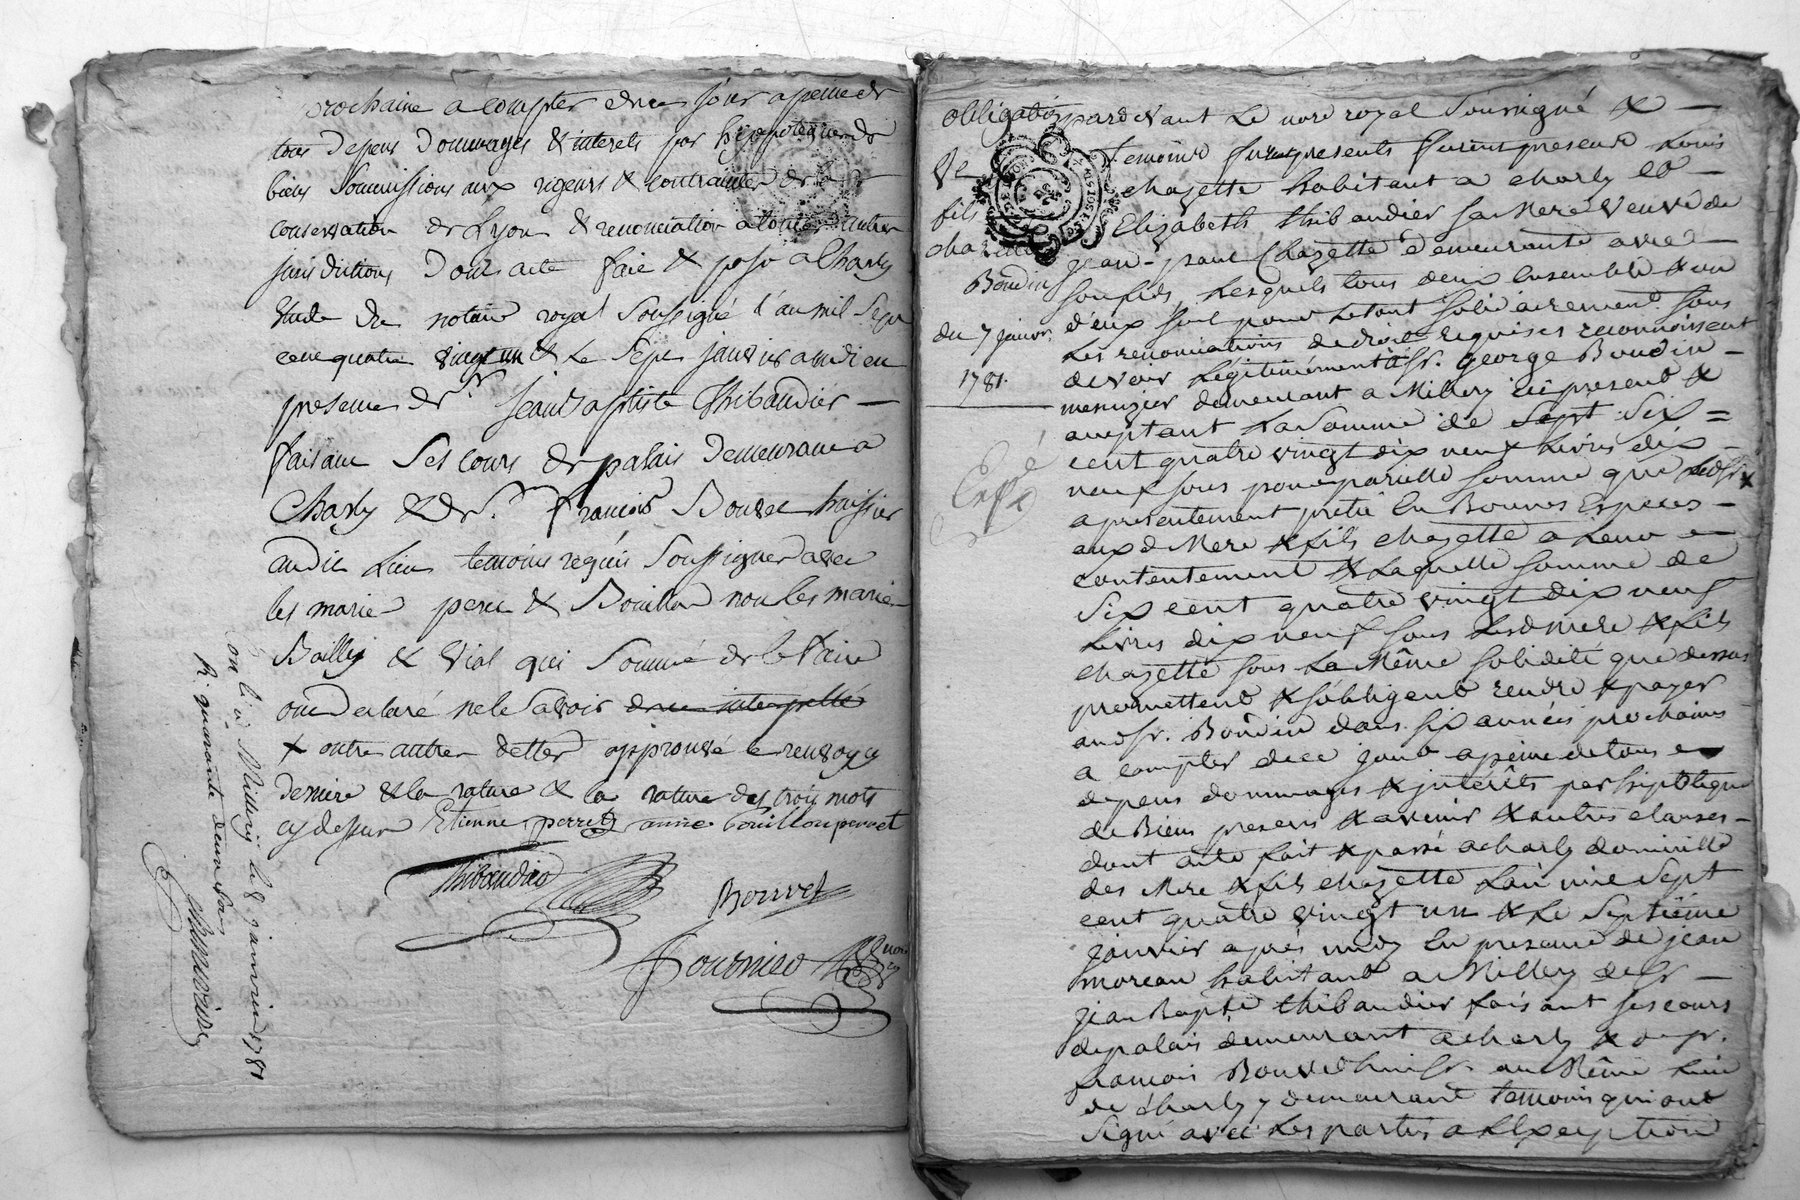 prochaine a compter de ce jour a peine de
tous depens dommages & interets par hipoteque de
biens soumissions aux rigeurs & contraintes de la
conservation de Lyon & renonciation a toutes autres
jurisdictions dont acte fait & passé a Charly
etude du notaire royal soussigné l'an mil sept
cent quatre vingt un & le sept janvier audi en
presence de sr. jean Baptiste Thibaudier —
faisant ses cours de palais demeurant a
Charly & de sr. françois Bouvet huissier
audit lieu temoins requis soussignes avec
les marié perret & Bouillon non les marié
Bailly & Vial qui sommé de le faire
ont declaré ne le savoir de ce interpellé
x outre autre dettes approuvé le renvoy cy
derniere & la rature & la rature des trois mots
cy dessus Etienne perret anne bouillon perret
Thibaudier
Bouvet
Fournier
Con lé a Millery le 8 janvier 1781
R. quarante deux sols
obligation
Ve
fils
chazette
Boudin
du 7 janvr.
1781.
Expé
pardevant le nore royal soussigné & —
temoins furent presents furent presens Louis
chazette habitant a charly &
Elizabeth thibaudier sa Mere veuve de
jean-paul Chazette demeurante avec
son fils, lesquels tous deux ensemble & un
d'eux seul pour le tout solidairement sous
les renonciations de droit requises reconnoissent
devoir légitimément a sr. george Boudin —
menuzier demeurant a Millery ici present &
acceptant la somme de sept six =
cent quatre vingt dix neuf livres dix
neuf sous pour pareille somme que ledsr. x
a presentement preté en Bonnes Especes —
auxd Mere & fils chazette a leur
contentement & laquelle somme de
six cent quatre vingt dix neuf
livres dix neuf sous lesd mere & fils
chazette sous la Même solidité que dessus
promettent & s'obligent rendre & payer
audsr. Boudin dans six années prochaines
a compter de ce jour a peine de tous
depens dommages & intérêts par hipoteque
de Biens presens & avenir & autres clauses —
dont acte fait & passé a charly domicille
des Mere & fils chazette l'an mil sept
cent quatre vingt un & le septième
janvier après midy en presence de jean
moreau habitant a Millery de sr —
jean Bapte thibaudier faisant ses cours
de palais demeurant a charly & de sr.
francois Bouvet huissr. au Même lieu
de charly y demeurant temoins qui ont
signé avec les parties a l'exception